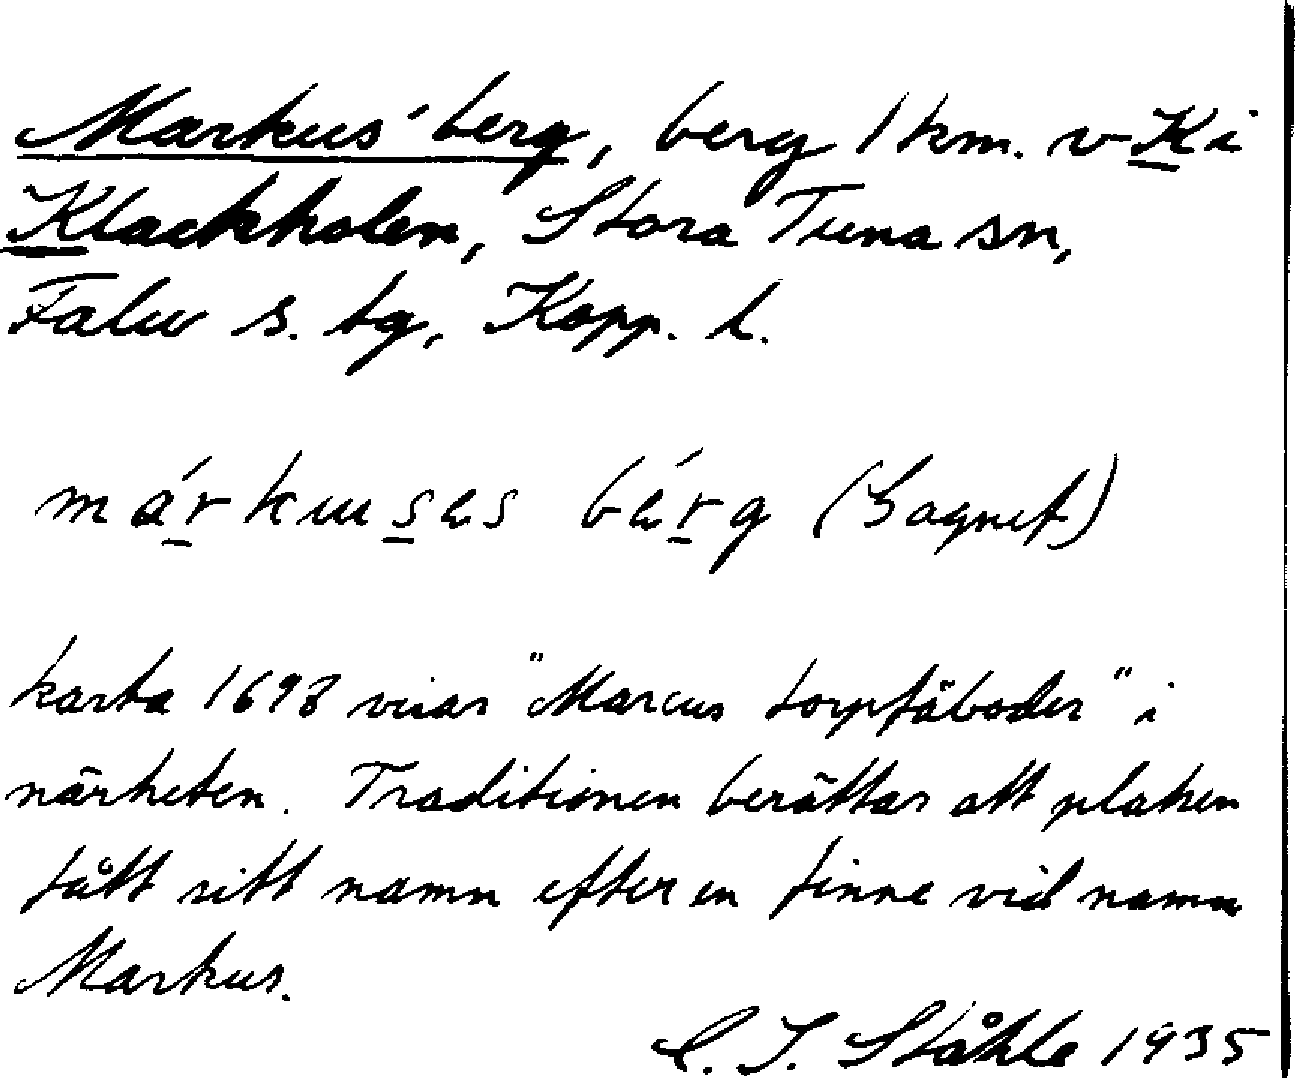 Markus' berg, berg 1 km. v K i
Klackholen, Stora Tuna sn,
Falu s. tg, Kopp. l.
márkuses bérg (Sagnet)
karta 1698 visar "Marcus torpfäboder" i
närheten. Traditionen berättar att platsen
fått sitt namn efter en finne vid namn
Markus.
C. I. Ståhle 1935